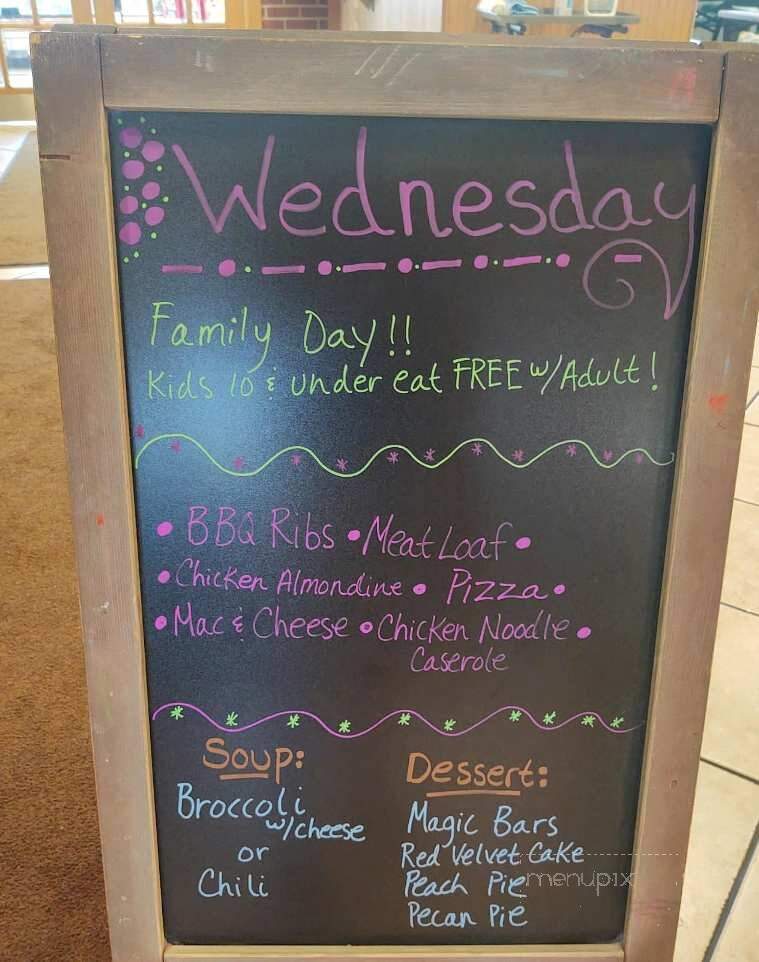 Wednesday
Family Day!!
Kids 10 & under eat FREE w/Adult!
• BBQ Ribs • Meat Loaf •
• Chicken Almondine • Pizza •
• Mac & Cheese • Chicken Noodle •
Caserole
Soup:
Broccoli
w/cheese
or
Chili
Dessert:
Magic Bars
Red Velvet Cake
Peach Pie
Pecan Pie
menupix